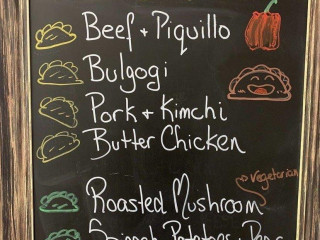 Beef + Piquillo
Bulgogi
Pork + Kimchi
Butter Chicken
Vegetarian
Roasted Mushroom